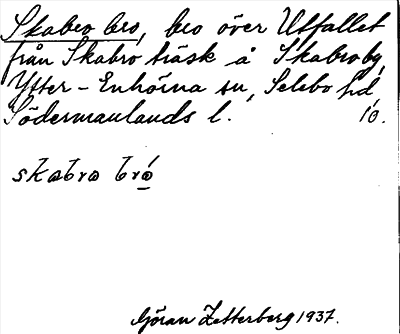 Skabro bro, bro över Utfallet
från Skabro träsk å Skabroby,
Ytter-Enhörna sn, Selebo hd
Södermanlands l. 10.
skabro bró
Göran Zetterberg 1937.